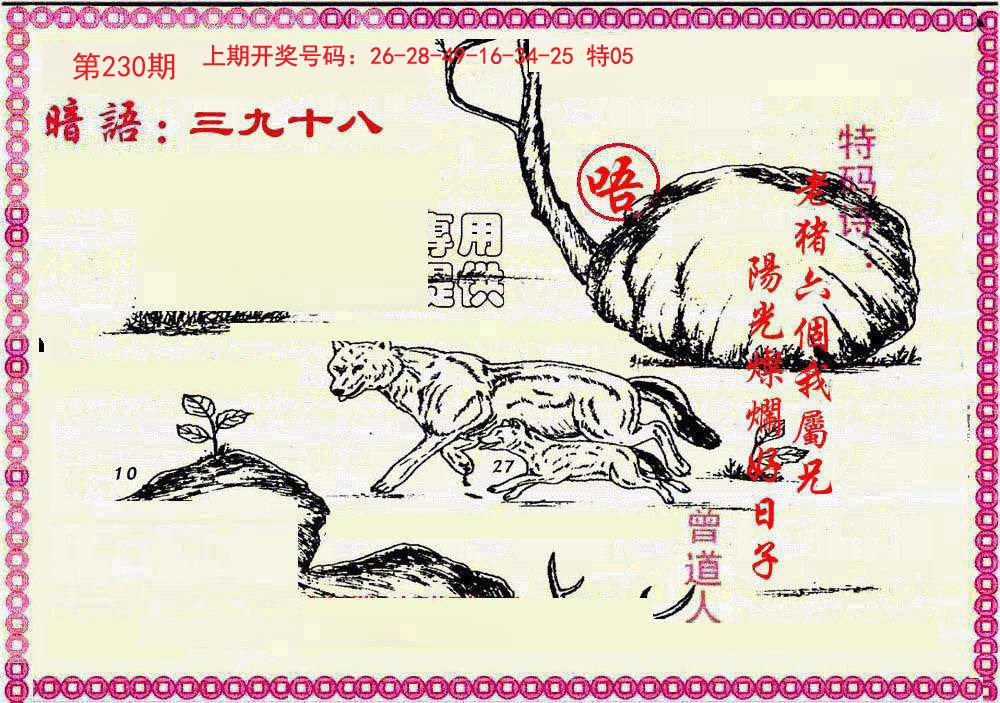 第230期
上期开奖号码：26-28-49-16-34-25 特05
暗語：三九十八
唔
特码诗：
老猪六個我屬兄
陽光燦爛好日子
用
供
10
27
曾道人